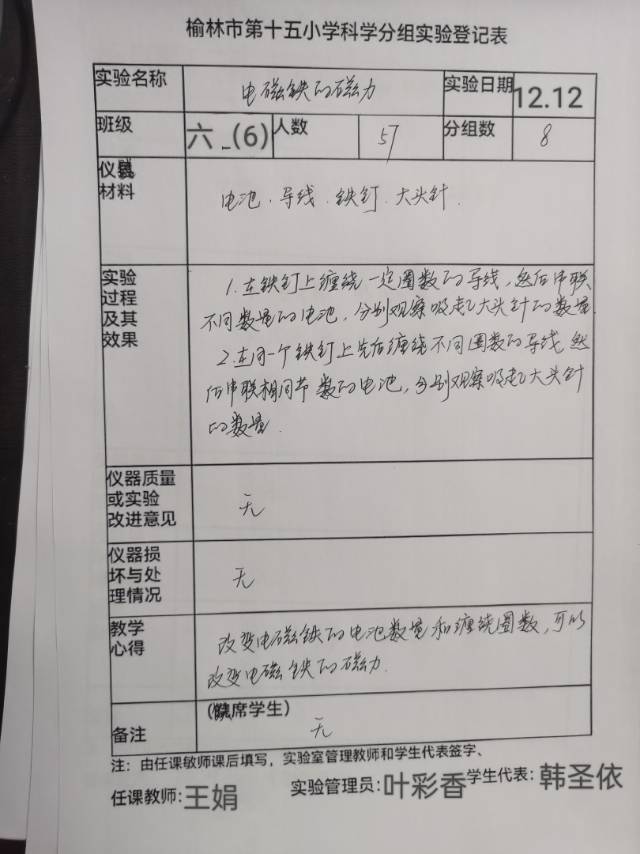 榆林市第十五小学科学分组实验登记表
实验名称 电磁铁的磁力 实验日期 12.12
班级 六_(6) 人数 57 分组数 8
仪器
材料
电池、导线、铁钉、大头针.
实验
过程
及其
效果
1.在铁钉上缠绕一定圈数的导线,然后串联
不同数量的电池,分别观察吸起大头针的数量
2.在同一个铁钉上先后缠绕不同圈数的导线,然
后串联相同节数的电池,分别观察吸起大头针
的数量.
仪器质量
或实验
改进意见
无
仪器损
坏与处
理情况
无
教学
心得
改变电磁铁的电池数量和缠绕圈数,可以
改变电磁铁的磁力.
备注
(缺席学生)
无
注:由任课教师课后填写,实验室管理教师和学生代表签字、
任课教师:王娟 实验管理员:叶彩香 学生代表:韩圣依